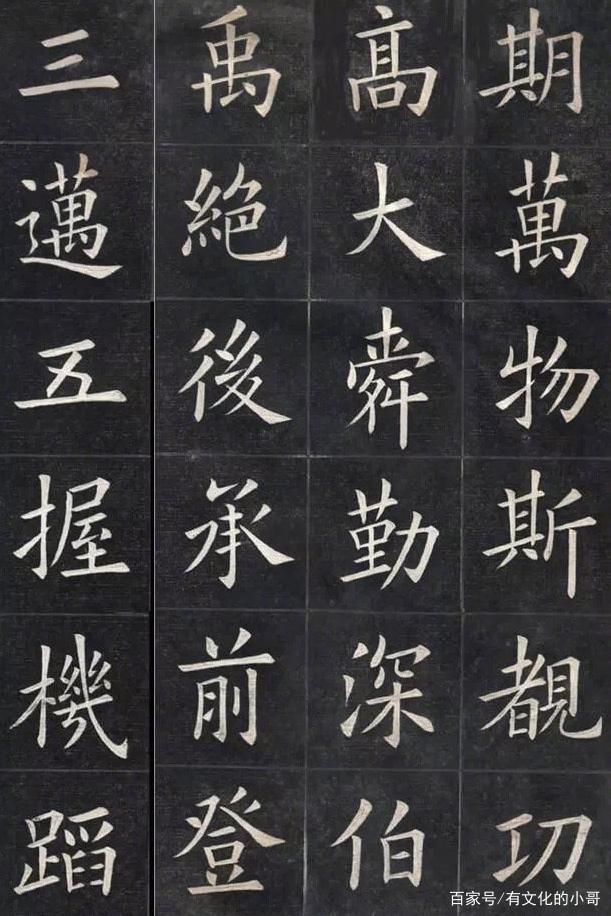 期萬物斯覩功
髙大舜勤深伯
禹絶後承前登
三邁五握機蹈
百家号/有文化的小哥